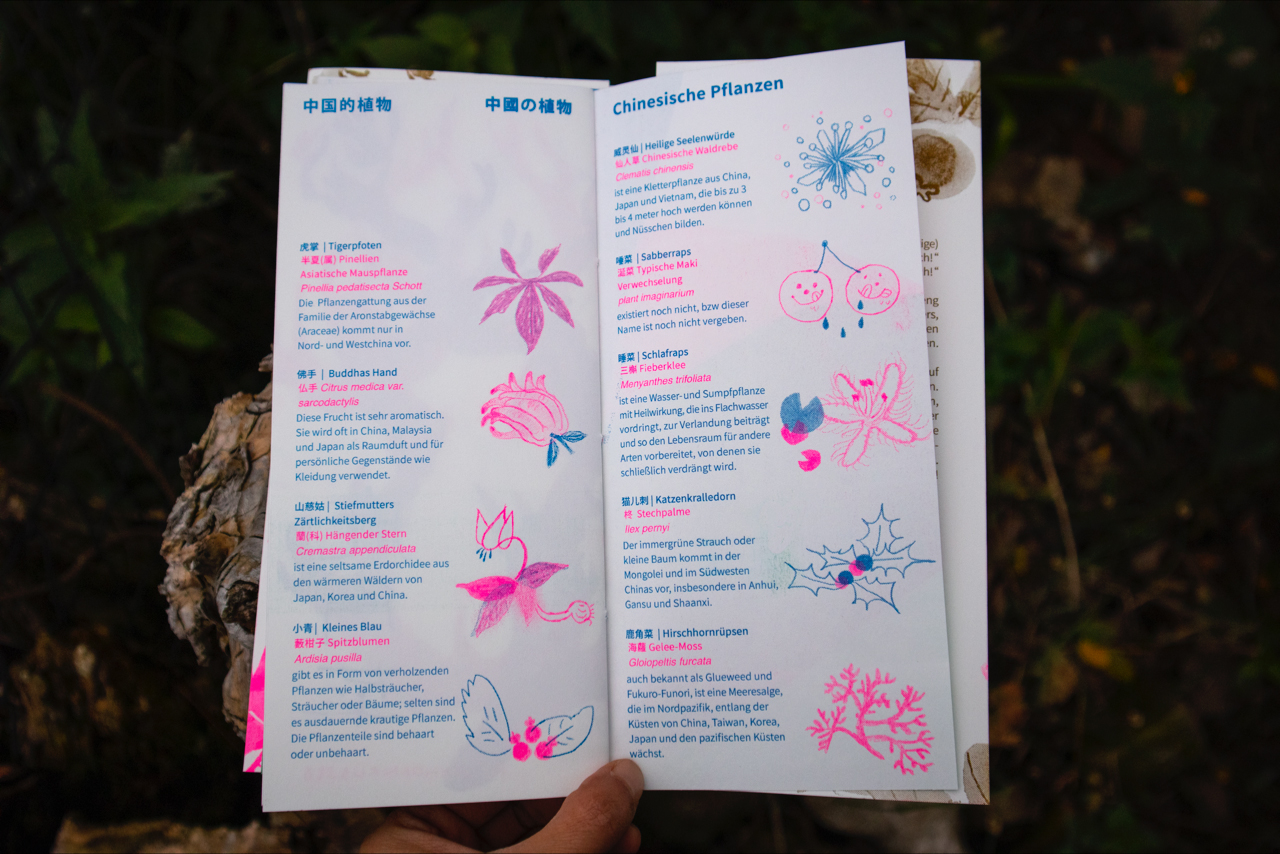 中国的植物
中國の植物
虎掌 | Tigerpfoten
半夏(属) Pinellien
Asiatische Mauspflanze
Pinellia pedatisecta Schott
Die Pflanzengattung aus der
Familie der Aronstabgewächse
(Araceae) kommt nur in
Nord- und Westchina vor.
佛手 | Buddhas Hand
仏手 Citrus medica var.
sarcodactylis
Diese Frucht ist sehr aromatisch.
Sie wird oft in China, Malaysia
und Japan als Raumduft und für
persönliche Gegenstände wie
Kleidung verwendet.
山慈姑 | Stiefmutters
Zärtlichkeitsberg
蘭(科) Hängender Stern
Cremastra appendiculata
ist eine seltsame Erdorchidee aus
den wärmeren Wäldern von
Japan, Korea und China.
小青 | Kleines Blau
藪柑子 Spitzblumen
Ardisia pusilla
gibt es in Form von verholzenden
Pflanzen wie Halbsträucher,
Sträucher oder Bäume; selten sind
es ausdauernde krautige Pflanzen.
Die Pflanzenteile sind behaart
oder unbehaart.
Chinesische Pflanzen
威灵仙 | Heilige Seelenwürde
仙人草 Chinesische Waldrebe
Clematis chinensis
ist eine Kletterpflanze aus China,
Japan und Vietnam, die bis zu 3
bis 4 meter hoch werden können
und Nüsschen bilden.
唾菜 | Sabberraps
涎菜 Typische Maki
Verwechselung
plant imaginarium
existiert noch nicht, bzw dieser
Name ist noch nicht vergeben.
睡菜 | Schlafraps
三槲 Fieberklee
Menyanthes trifoliata
ist eine Wasser- und Sumpfpflanze
mit Heilwirkung, die ins Flachwasser
vordringt, zur Verlandung beiträgt
und so den Lebensraum für andere
Arten vorbereitet, von denen sie
schließlich verdrängt wird.
猫儿刺 | Katzenkralledorn
柊 Stechpalme
Ilex pernyi
Der immergrüne Strauch oder
kleine Baum kommt in der
Mongolei und im Südwesten
Chinas vor, insbesondere in Anhui,
Gansu und Shaanxi.
鹿角菜 | Hirschhornrüpsen
海蘿 Gelee-Moss
Gloiopeltis furcata
auch bekannt als Glueweed und
Fukuro-Funori, ist eine Meeresalge,
die im Nordpazifik, entlang der
Küsten von China, Taiwan, Korea,
Japan und den pazifischen Küsten
wächst.